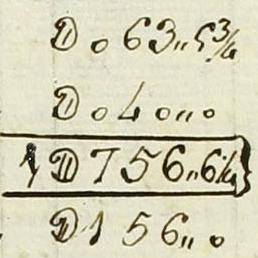 D o 63„5¾
D o 40„o
1 D 756„6¼}
D 156„o